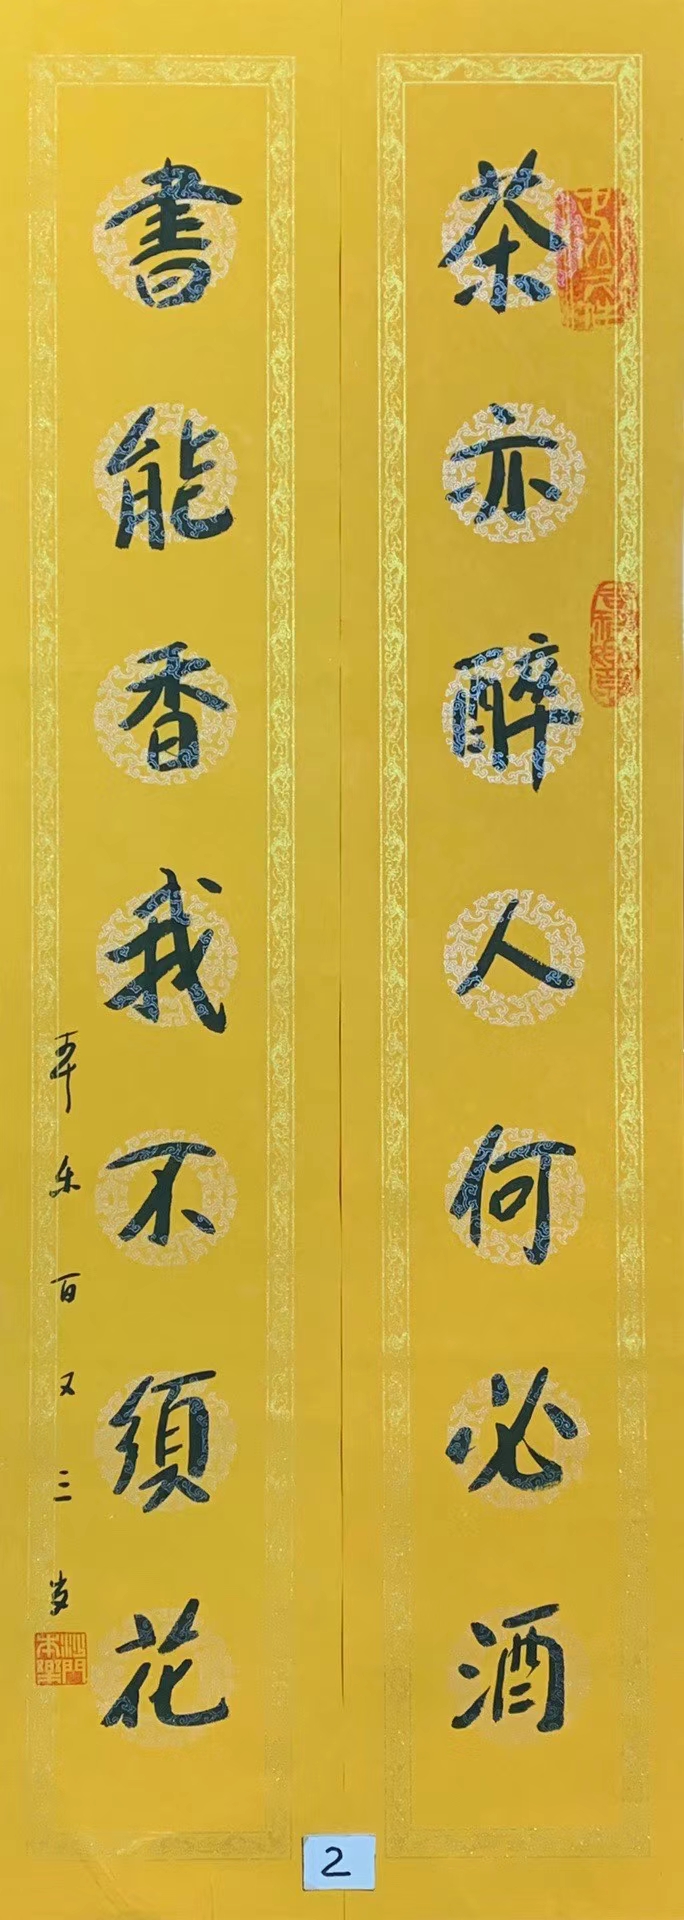 茶亦醉人何必酒
書能香我不須花
本乐百又三岁
沙門本樂
2